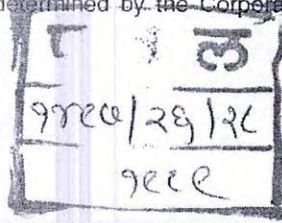 determined by the Corpora
ल
१४९७/२६/२८
१९९९